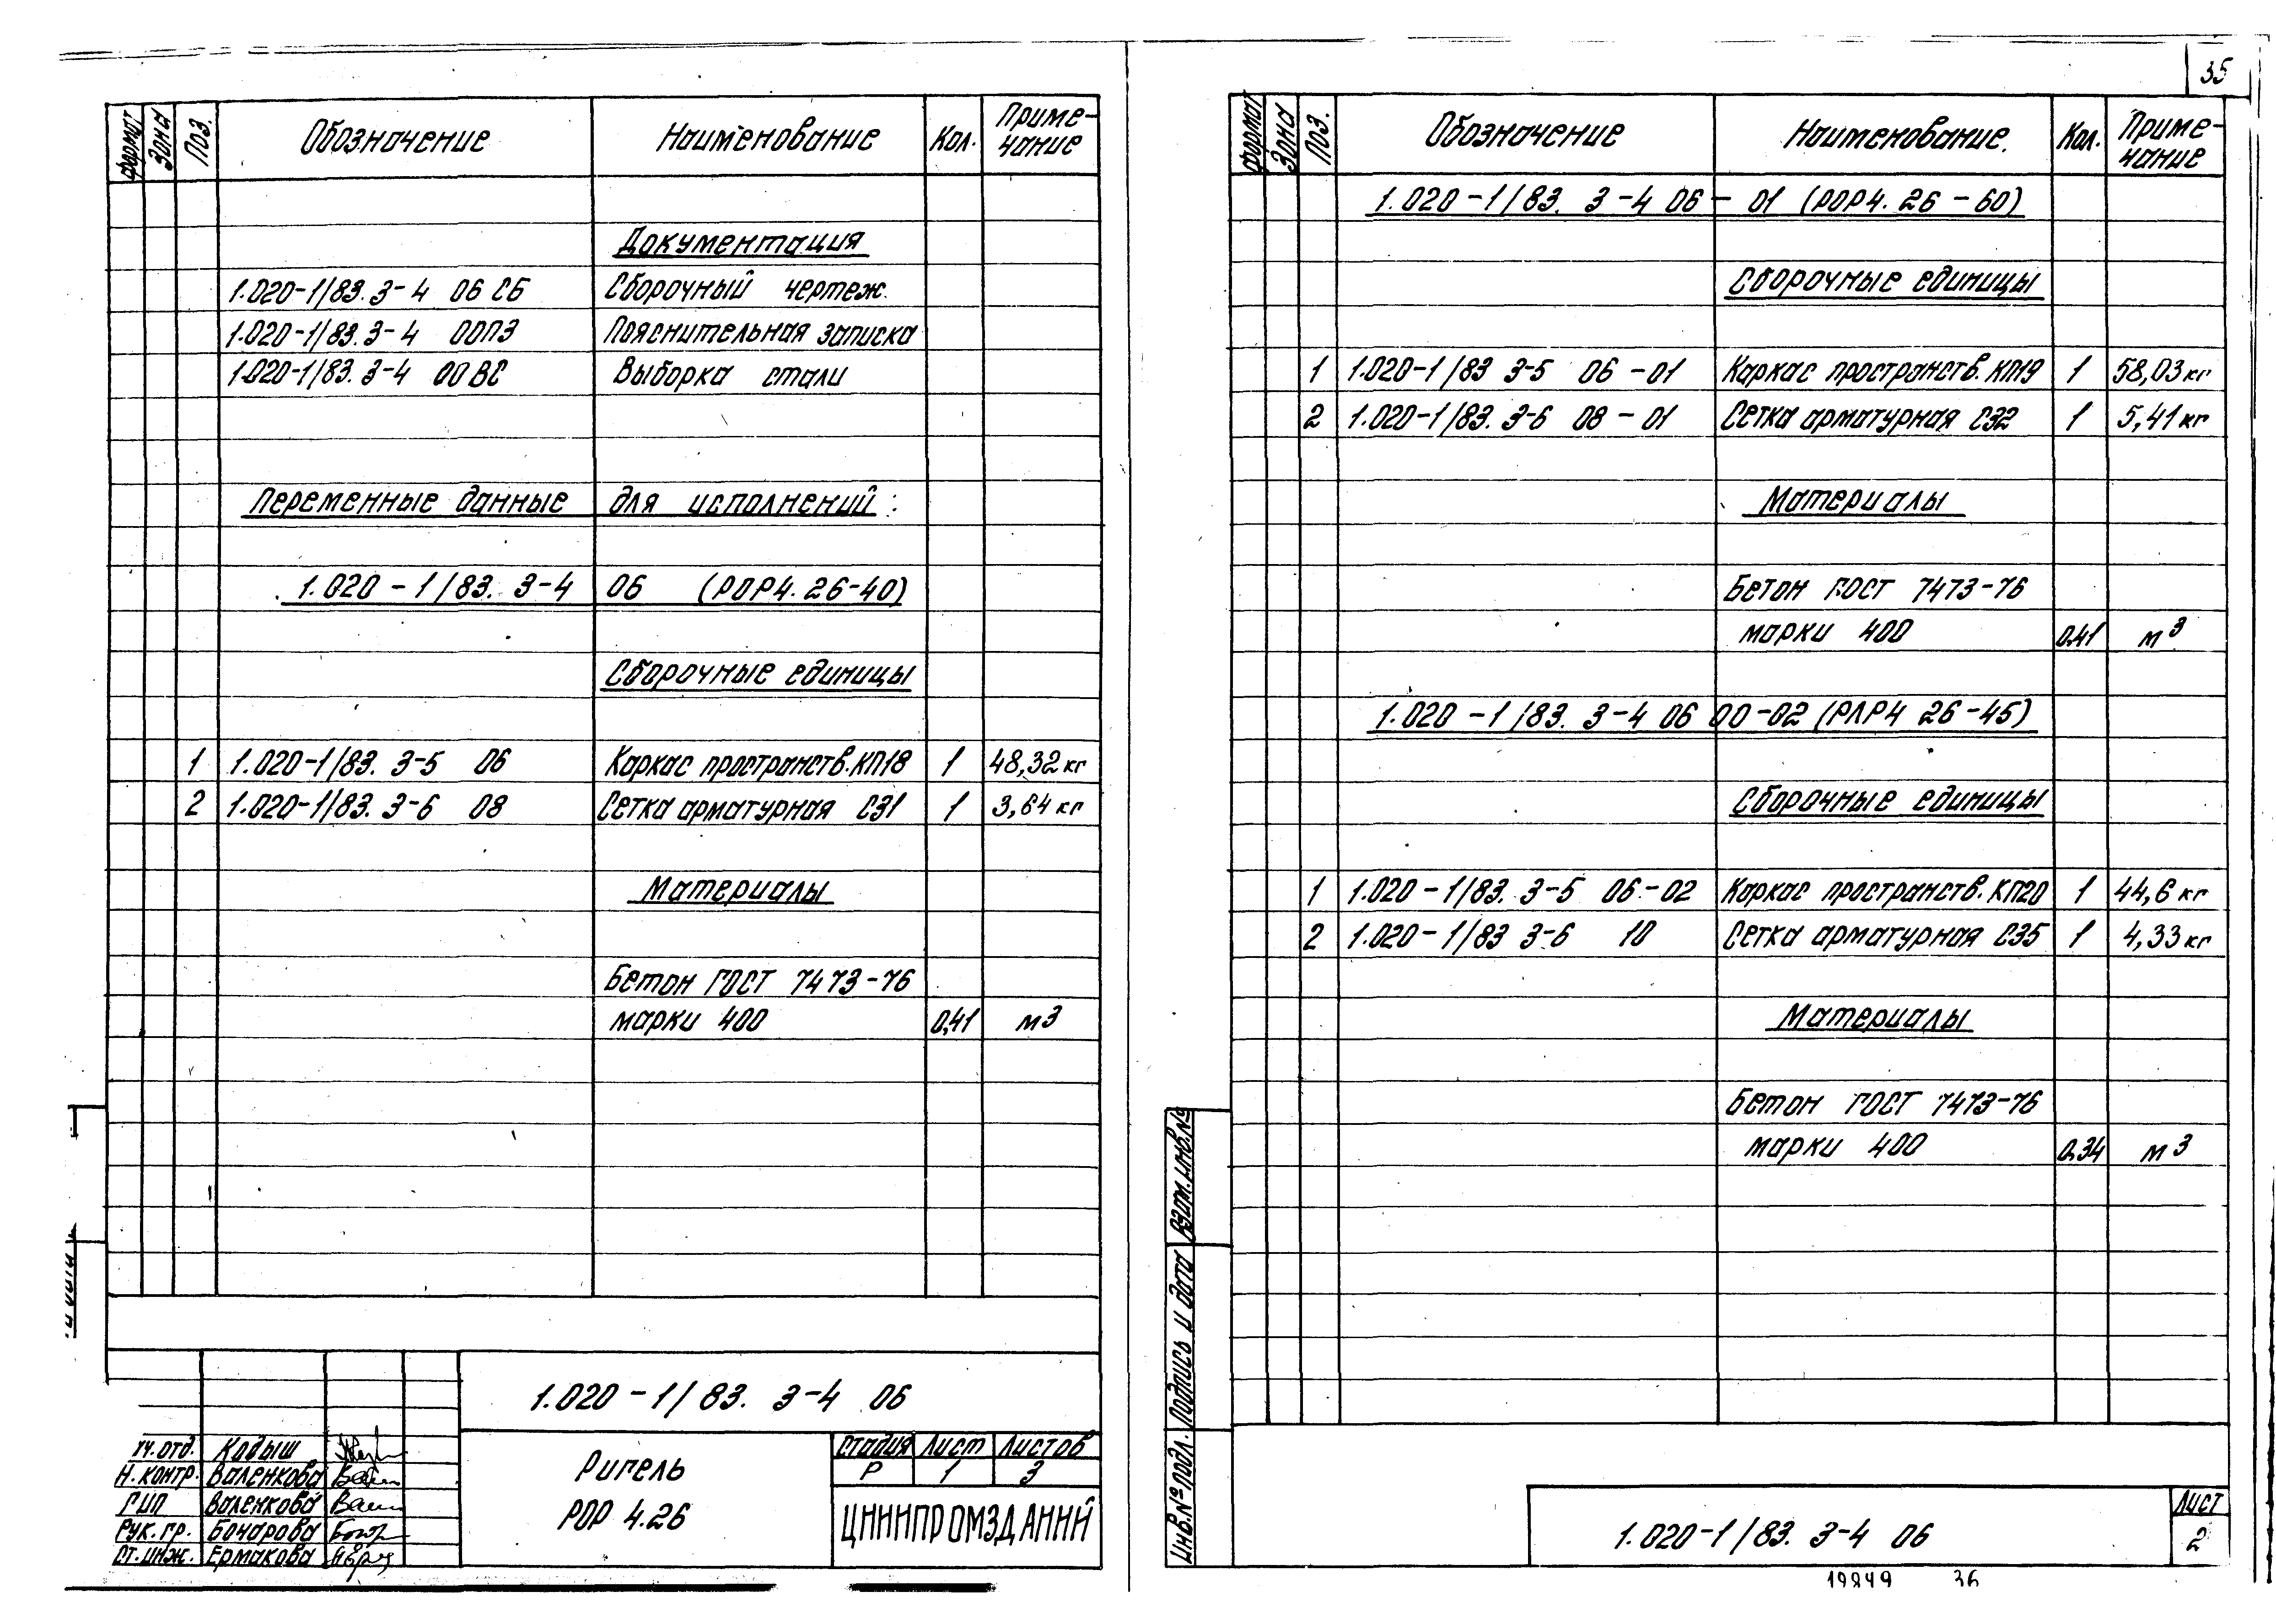 формат Зона Поз. Обозначение Наименование Кол. Приме-
чание
Документация
1.020-1/83. 3-4 06 СБ Сборочный чертеж
1.020-1/83. 3-4 00ПЗ Пояснительная записка
1.020-1/83. 3-4 00 ВС Выборка стали
Переменные данные для исполнений:
1.020-1/83. 3-4 06 (РОР4.26-40)
Сборочные единицы
1 1.020-1/83. 3-5 06 Каркас пространств. КП18 1 48,32 кг
2 1.020-1/83. 3-6 08 Сетка арматурная С31 1 3,64 кг
Материалы
Бетон ГОСТ 7473-76
марки 400 0,41 м3
1.020-1/83. 3-4 06
Ригель
РОР 4.26
Стадия Лист Листов
Р 1 3
ЦНИИПРОМЗДАНИЙ
Нач. отд. Кодыш
Н. контр. Валенкова
ГИП Валенкова
Рук. гр. Бочарова
Ст. инж. Ермакова
35
формат Зона Поз. Обозначение Наименование. Кол. Приме-
чание
1.020-1/83. 3-4 06-01 (РОР4.26-60)
Сборочные единицы
1 1.020-1/83 3-5 06-01 Каркас пространств. КП19 1 58,03 кг
2 1.020-1/83. 3-6 08-01 Сетка арматурная С32 1 5,41 кг
Материалы
Бетон ГОСТ 7473-76
марки 400 0,41 м3
1.020-1/83. 3-4 06 00-02 (РЛР4 26-45)
Сборочные единицы
1 1.020-1/83. 3-5 06-02 Каркас пространств. КП20 1 44,6 кг
2 1.020-1/83 3-6 10 Сетка арматурная С35 1 4,33 кг
Материалы
Бетон ГОСТ 7473-76
марки 400 0,34 м3
Инв.№ подл. Подпись и дата Взам. инв.№
1.020-1/83. 3-4 06
Лист
2
19849 36